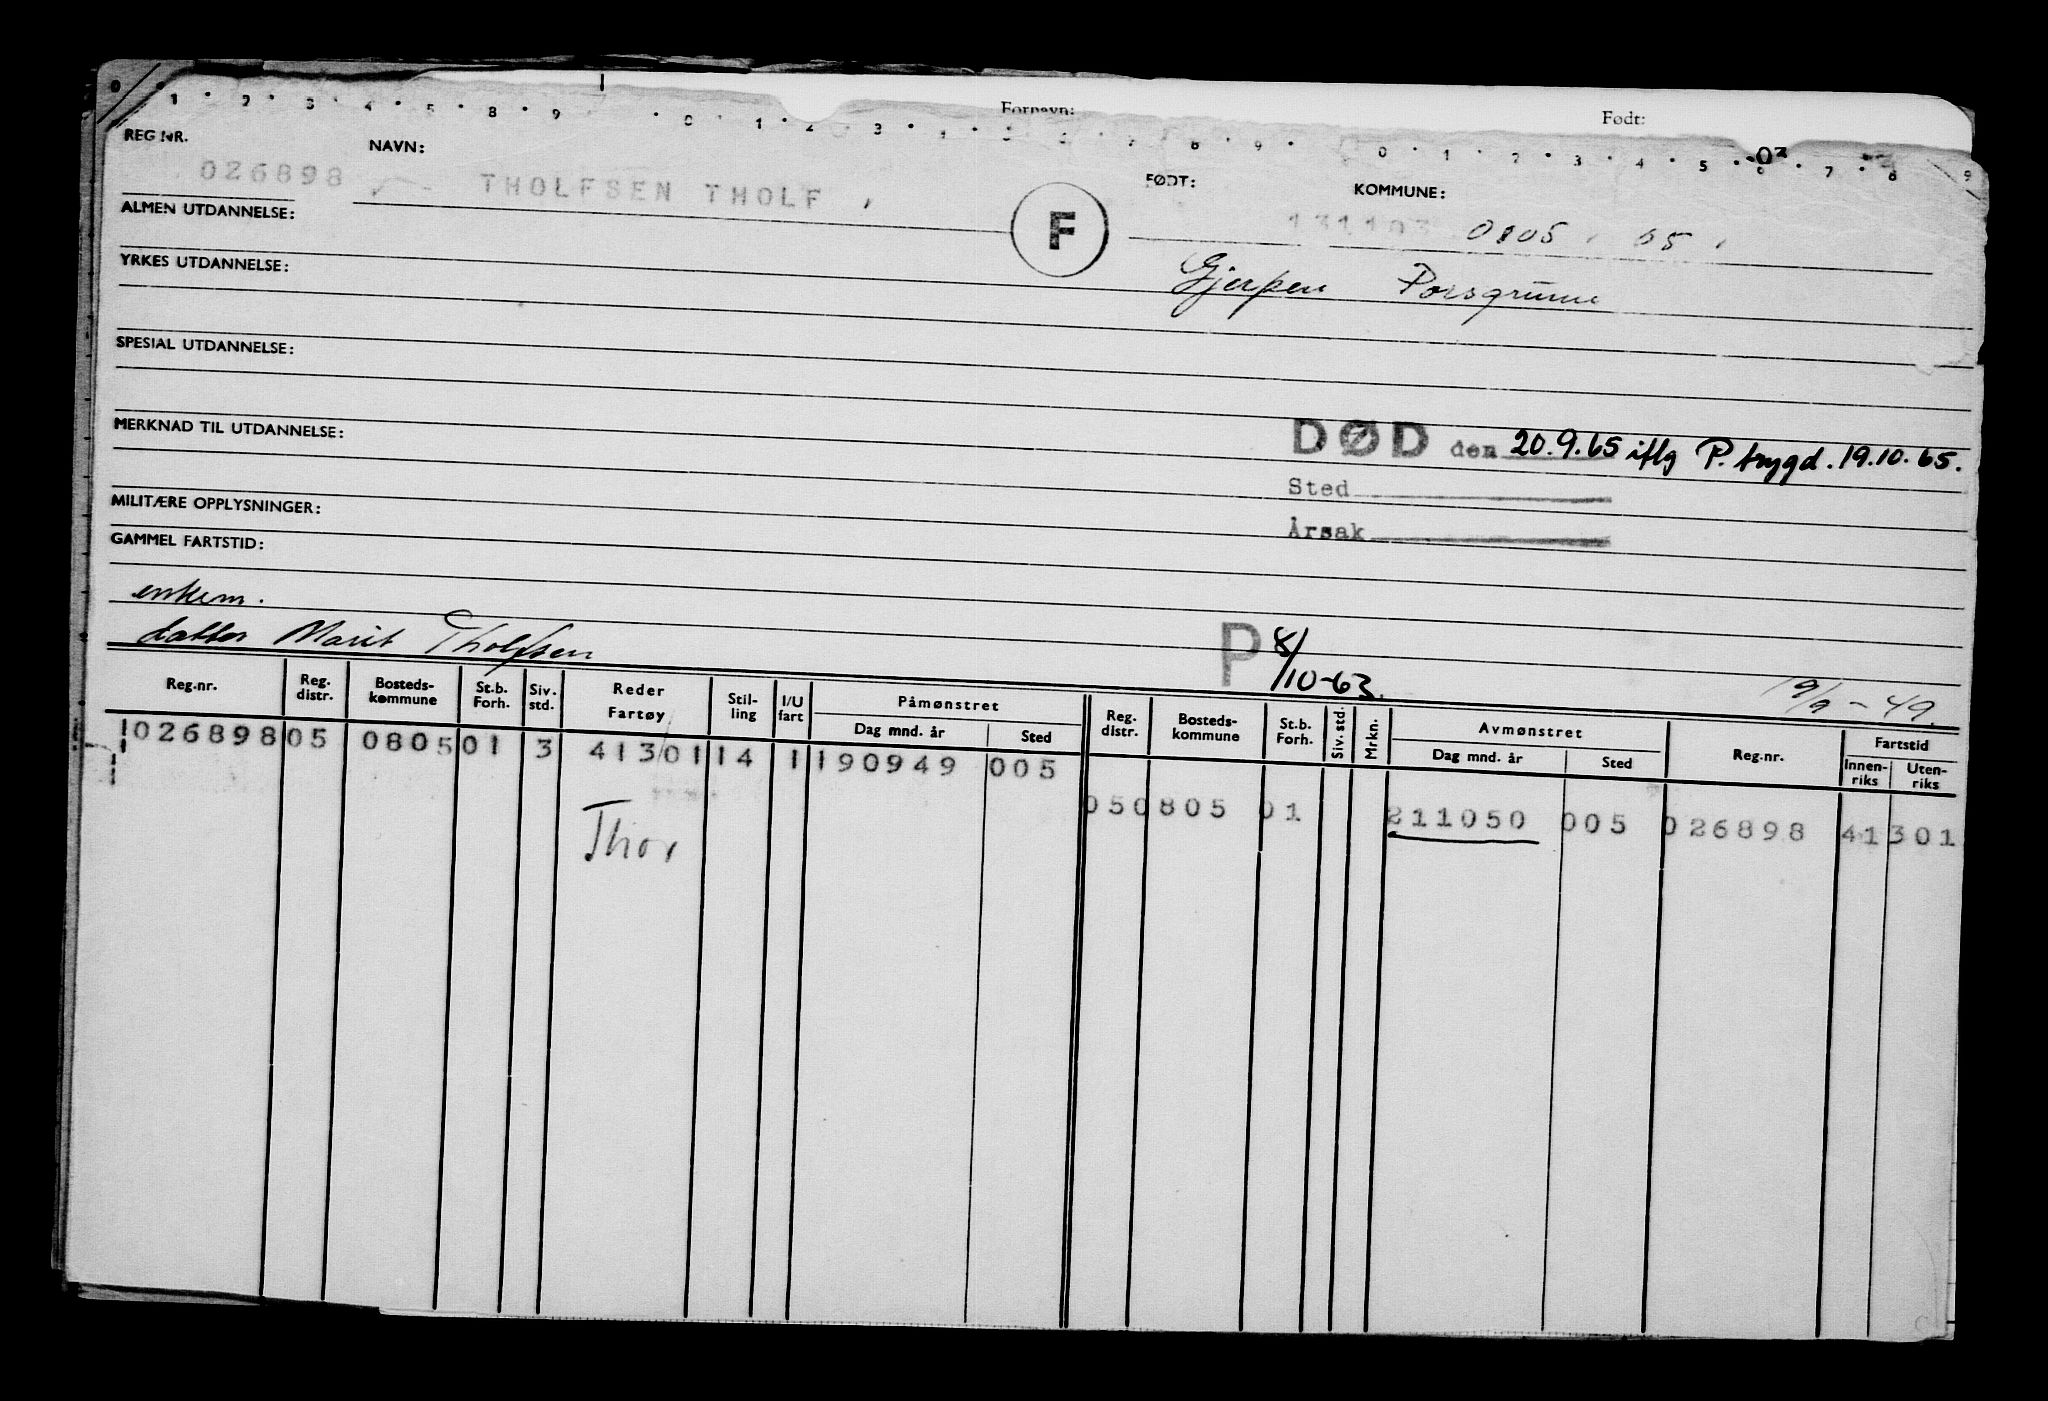 Fornavn: Født:
0 1 2 3 4 5 8 9 0 1 2 3 0 1 2 3 4 5 7 8 9
03
REG NR. NAVN: FØDT: KOMMUNE:
026898 THOLFSEN THOLF 131103 0805 05
ALMEN UTDANNELSE:
F
YRKES UTDANNELSE:
Gjerpen Porsgrunn
SPESIAL UTDANNELSE:
MERKNAD TIL UTDANNELSE:
DØD den 20.9.65 iflg P. trygd. 19.10.65.
Sted
MILITÆRE OPPLYSNINGER:
Årsak
GAMMEL FARTSTID:
enkem.
datter Marit Tholfsen
P 8/10-63.
19/9-49.
Reg.nr. Reg. distr. Bosteds-kommune St.b. Forh. Siv. std. Reder Fartøy Stil-ling I/U fart Påmønstret Dag mnd. år Sted Reg. distr. Bosteds-kommune St.b. Forh. Siv. std. Mrkn. Avmønstret Dag mnd. år Sted Reg.nr. Fartstid Innen-riks Uten-riks
026898 05 0805 01 3 41301 14 1 190949 005
05 0805 01 211050 005 026898 41301
Thor